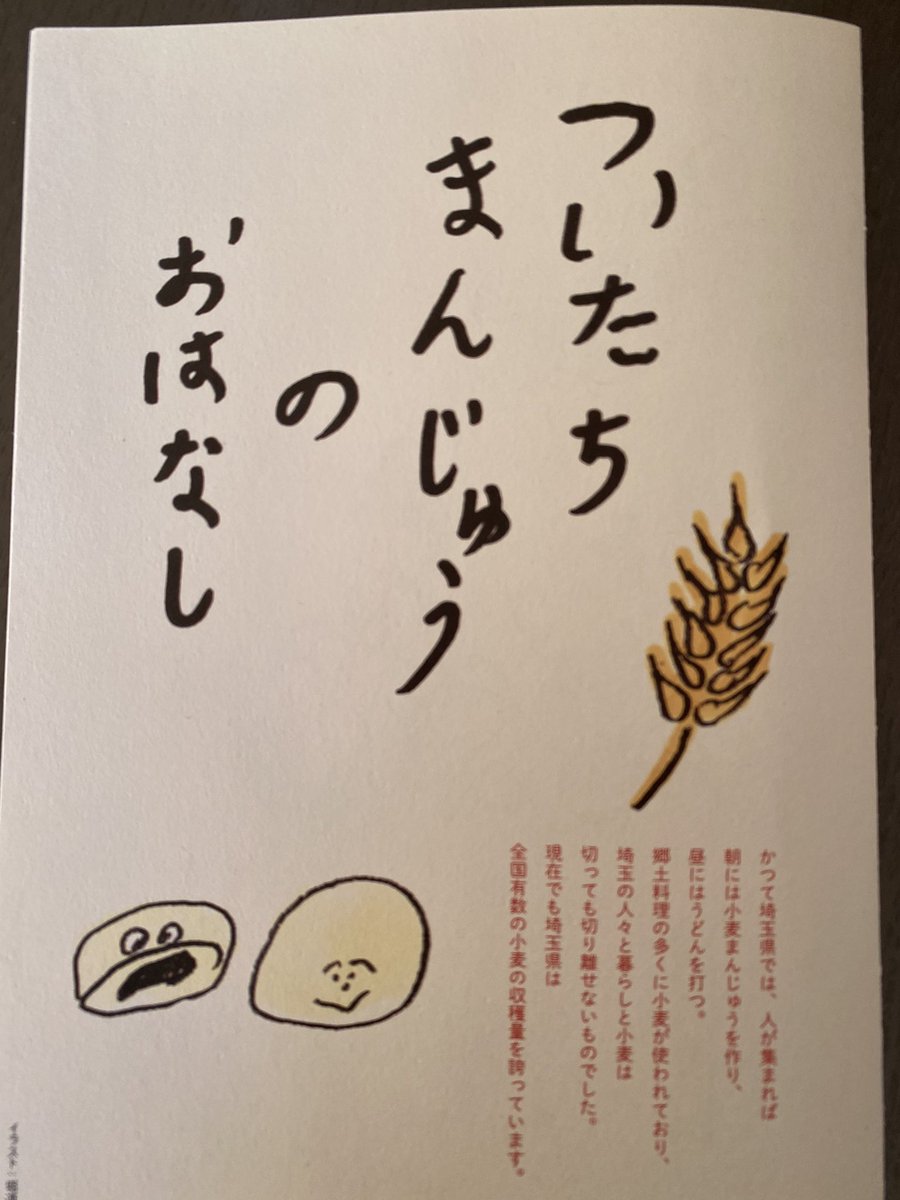 ついたち
まんじゅう
の
おはなし
かつて埼玉県では、人が集まれば
朝には小麦まんじゅうを作り、
昼にはうどんを打つ。
郷土料理の多くに小麦が使われており、
埼玉の人々と暮らしと小麦は
切っても切り離せないものでした。
現在でも埼玉県は
全国有数の小麦の収穫量を誇っています。
イラスト：